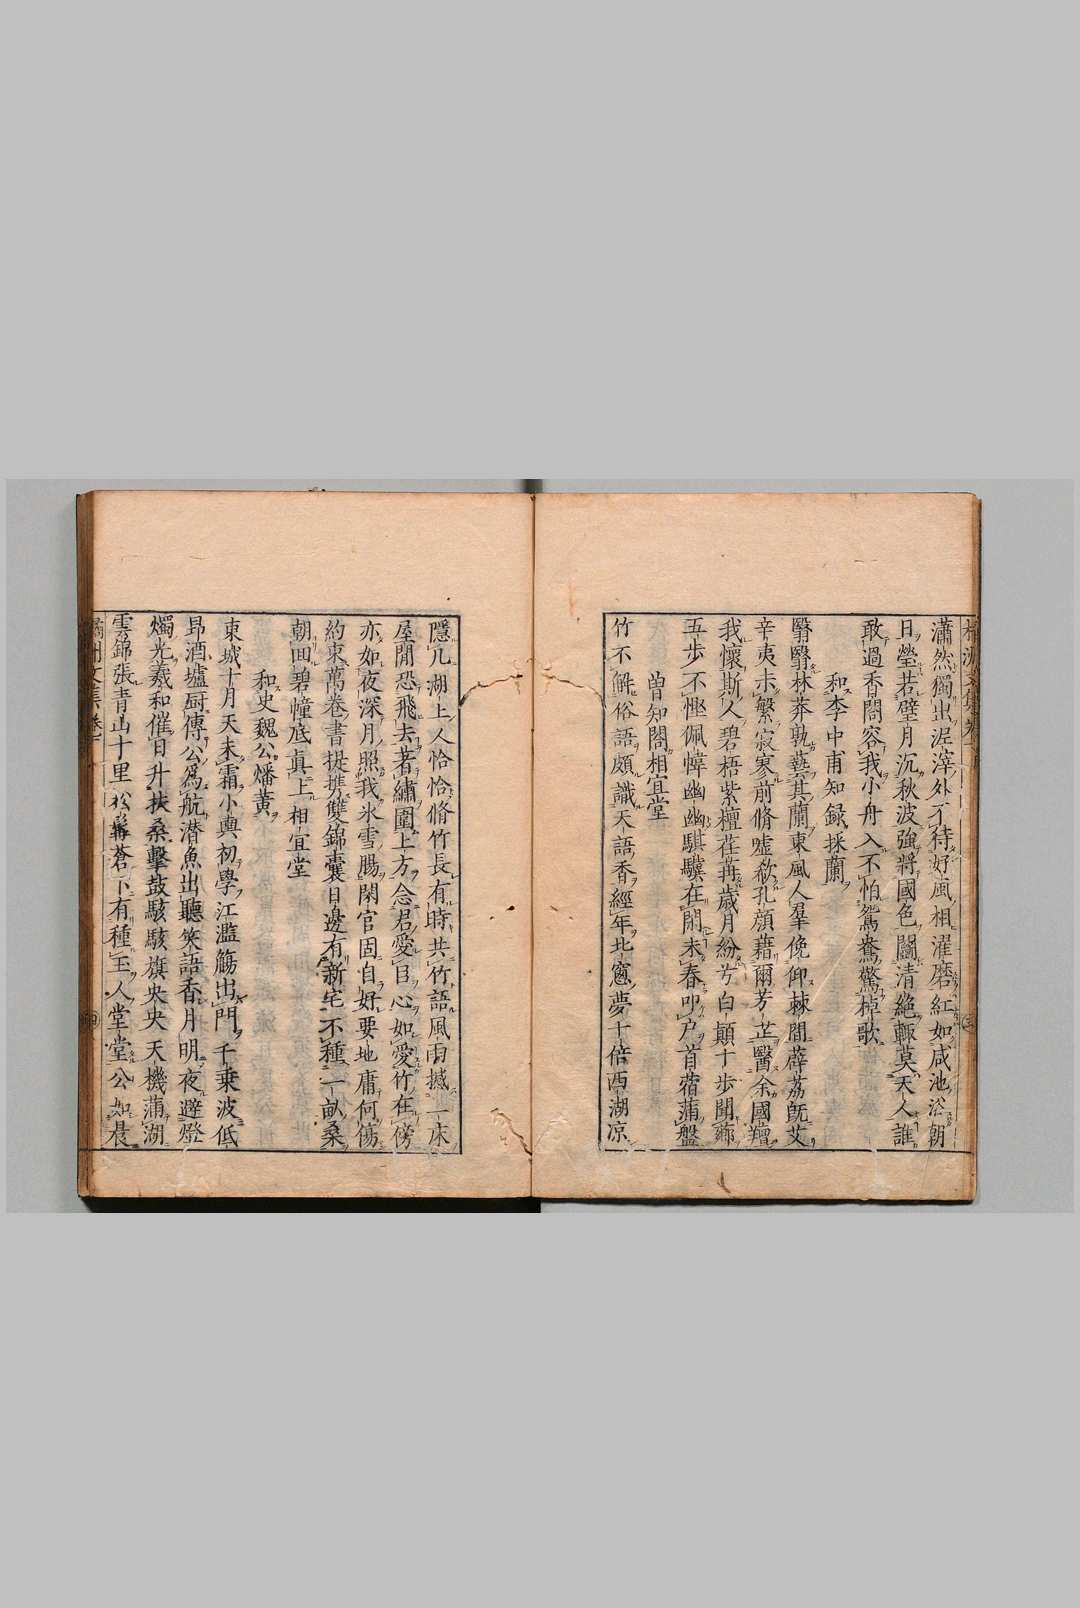 瀟然獨出泥滓外不待好風相濯磨紅如咸池浴朝
日瑩若璧月沉秋波強將國色鬬清絶輒莫天人誰
敢過香閟容我小舟入不怕鴛鴦驚棹歌
和李中甫知録採蘭
翳翳林莽孰藝其蘭東風人羣俛仰棘間薜荔旣艾
辛夷未繁寂寥前脩嘘欷孔顔藉爾芳芷醫余國羶
我懷斯人碧梧紫檀荏苒歳月紛兮白顛十歩聞薌
五歩不慳佩幃幽幽騏驥在閑未春叩户首蓿蒲盤
曽知閤相宜堂
竹不解俗語頗識天語香經年北窻夢十倍西湖凉
隱几湖上人恰恰脩竹長有時共竹語風雨撼一床
屋閒恐飛去著繡圍上方念君愛目心如愛竹在傍
亦如夜深月照我氷雪腸閑官固自好要地庸何傷
約束萬巻書提携雙錦囊日邊有新宅不種一畝桑
朝回碧幢底眞上相宜堂
和史魏公燔黄
東城十月天未霜小輿初學江濫觴出門千乗波低
昻酒壚厨傳公爲航潜魚出聽笑語香月明夜避燈
燭光羲和催日升扶桑擊鼓駭駭旗央央天機蒲湖
雲錦張青山十里松髯蒼下有種玉人堂堂公如晨
橘洲文集巻十